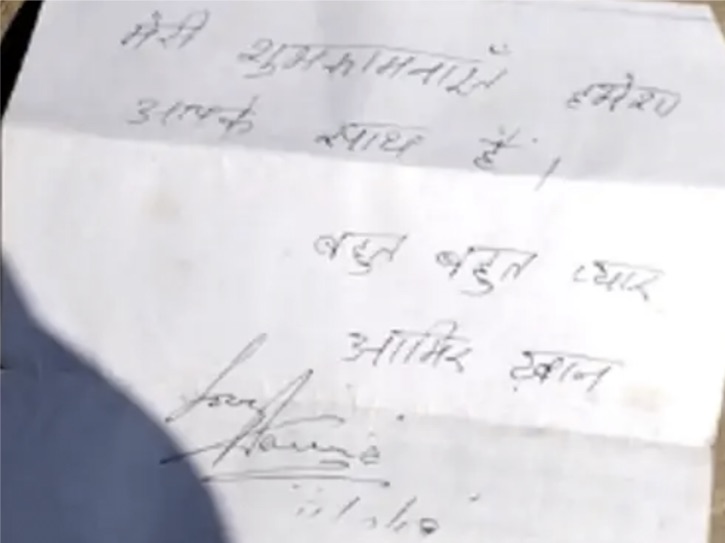 मेरी शुभकामनाएँ हमेशा
आपके साथ हैं।
बहुत बहुत प्यार
आमिर ख़ान
Love